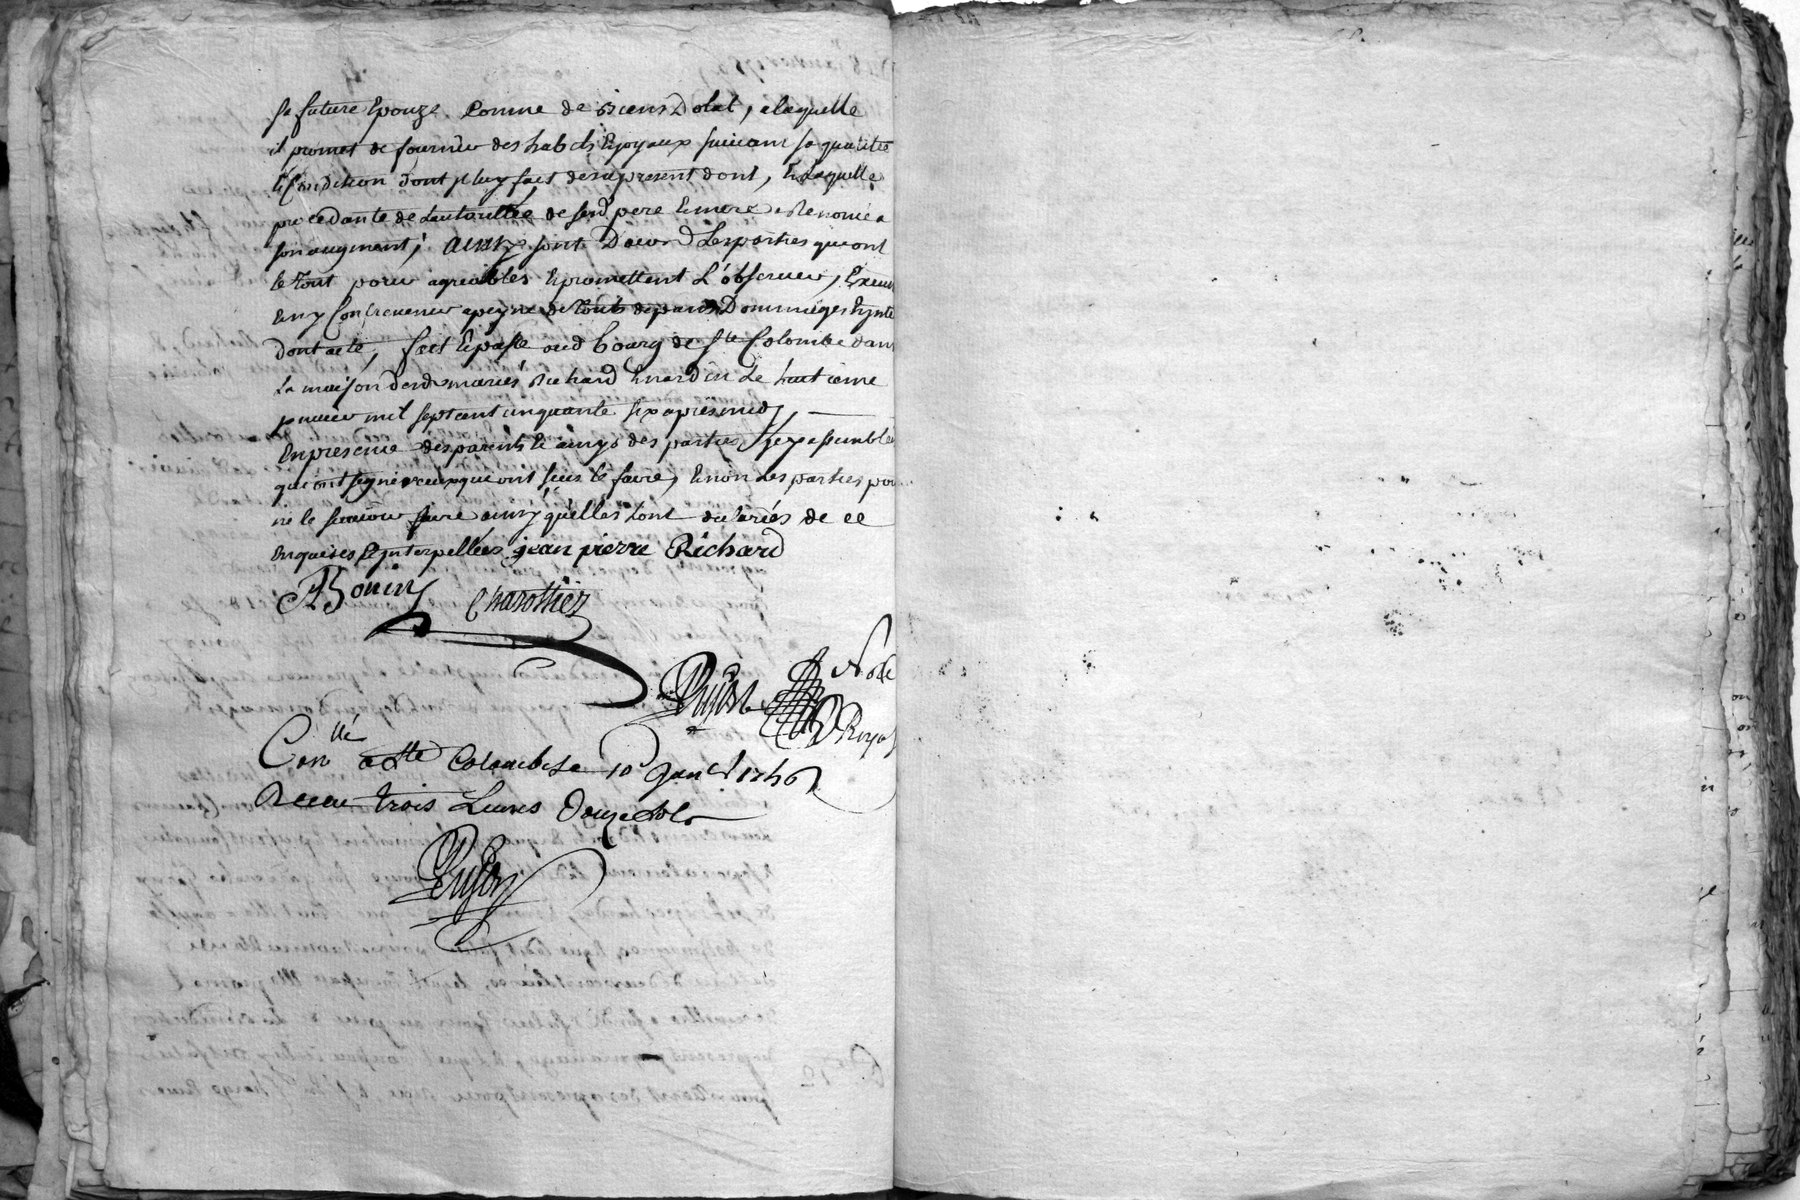 sa future Epouze comme de Biens Dotal, a laquelle
il promet de fournir des habits & joyaux suivant sa qualité
& Condition dont il luy fait des a present dont, & laquelle
procedante de l'autorité de sesd pere & mere a Renoncé a
son augment; ainsy sont D'acord Les parties qui ont
le tout pour agreables & promettent L'observer,
& ny Contrevenir a peyne de touts depans Dommages
dont acte, fait & passé aud bourg de Ste Colombe dans
La maison desd mariés Richard & le huitieme
janvier mil sept cent cinquante six apres midy,
En presence des parents & amys des parties assemblés
qui ont signé ceux qui ont sceu le faire, & non Les parties pour
ne le scavoir faire ainsy qu'elles l'ont declarés de ce
enquises & interpellées jean pierre Richard
Bonin Charottier
Nore
Royal
Conlle a Ste Colombe Le 10 Janer 1756
Receu trois Livres Douze sols